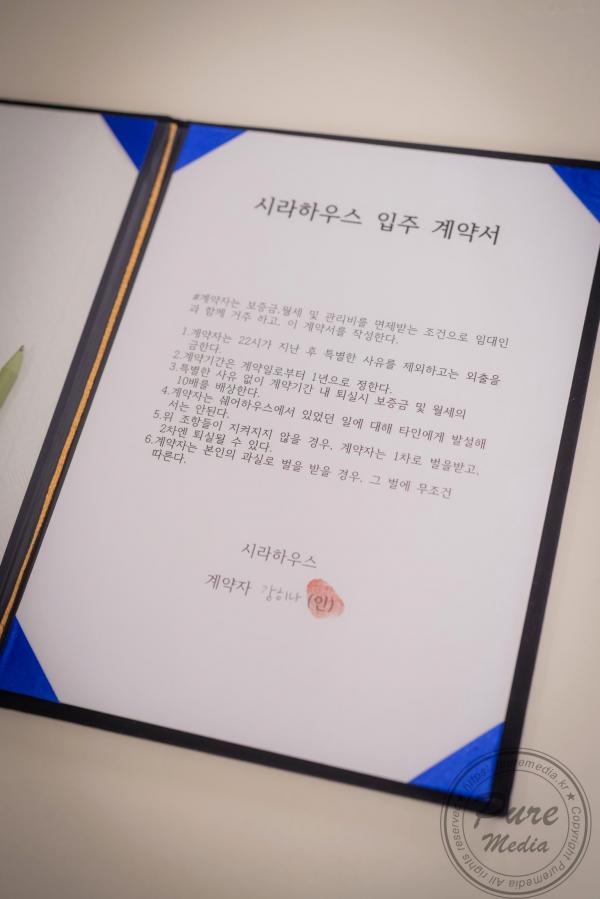 시라하우스 입주 계약서
#계약자는 보증금,월세 및 관리비를 면제받는 조건으로 임대인
과 함께 거주 하고, 이 계약서를 작성한다.
1.계약자는 22시가 지난 후 특별한 사유를 제외하고는 외출을
금한다.
2.계약기간은 계약일로부터 1년으로 정한다.
3.특별한 사유 없이 계약기간 내 퇴실시 보증금 및 월세의
10배를 배상한다.
4.계약자는 쉐어하우스에서 있었던 일에 대해 타인에게 발설해
서는 안된다.
5.위 조항들이 지켜지지 않을 경우, 계약자는 1차로 벌을받고,
2차엔 퇴실될 수 있다.
6.계약자는 본인의 과실로 벌을 받을 경우, 그 벌에 무조건
따른다.
시라하우스
계약자 강히나 (인)
https://puremedia.kr ★ Copyright Puremedia All rights reserved
Pure
Media